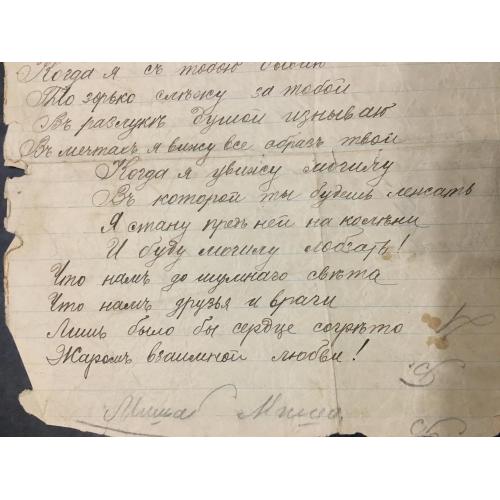 Когда я съ тобою бываю
То зорько слѣжу за тобой
Въ разлукѣ душой изнываю
Въ мечтахъ я вижу все образъ твой
Когда я увижу могилу
Въ которой ты будешь лежать
Я стану предъ ней на колѣни
И буду могилу лобзать!
Что намъ до шумнаго свѣта
Что намъ друзья и врачи
Лишь было бы сердце согрѣто
Жаромъ взаимной любви!